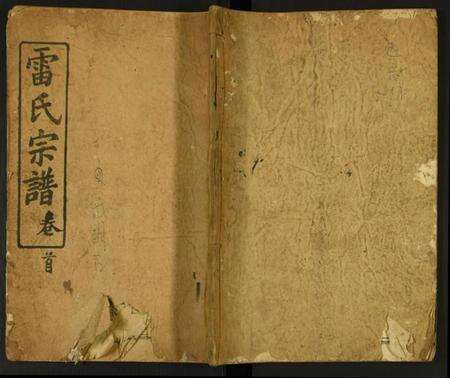 雷氏宗譜
卷首